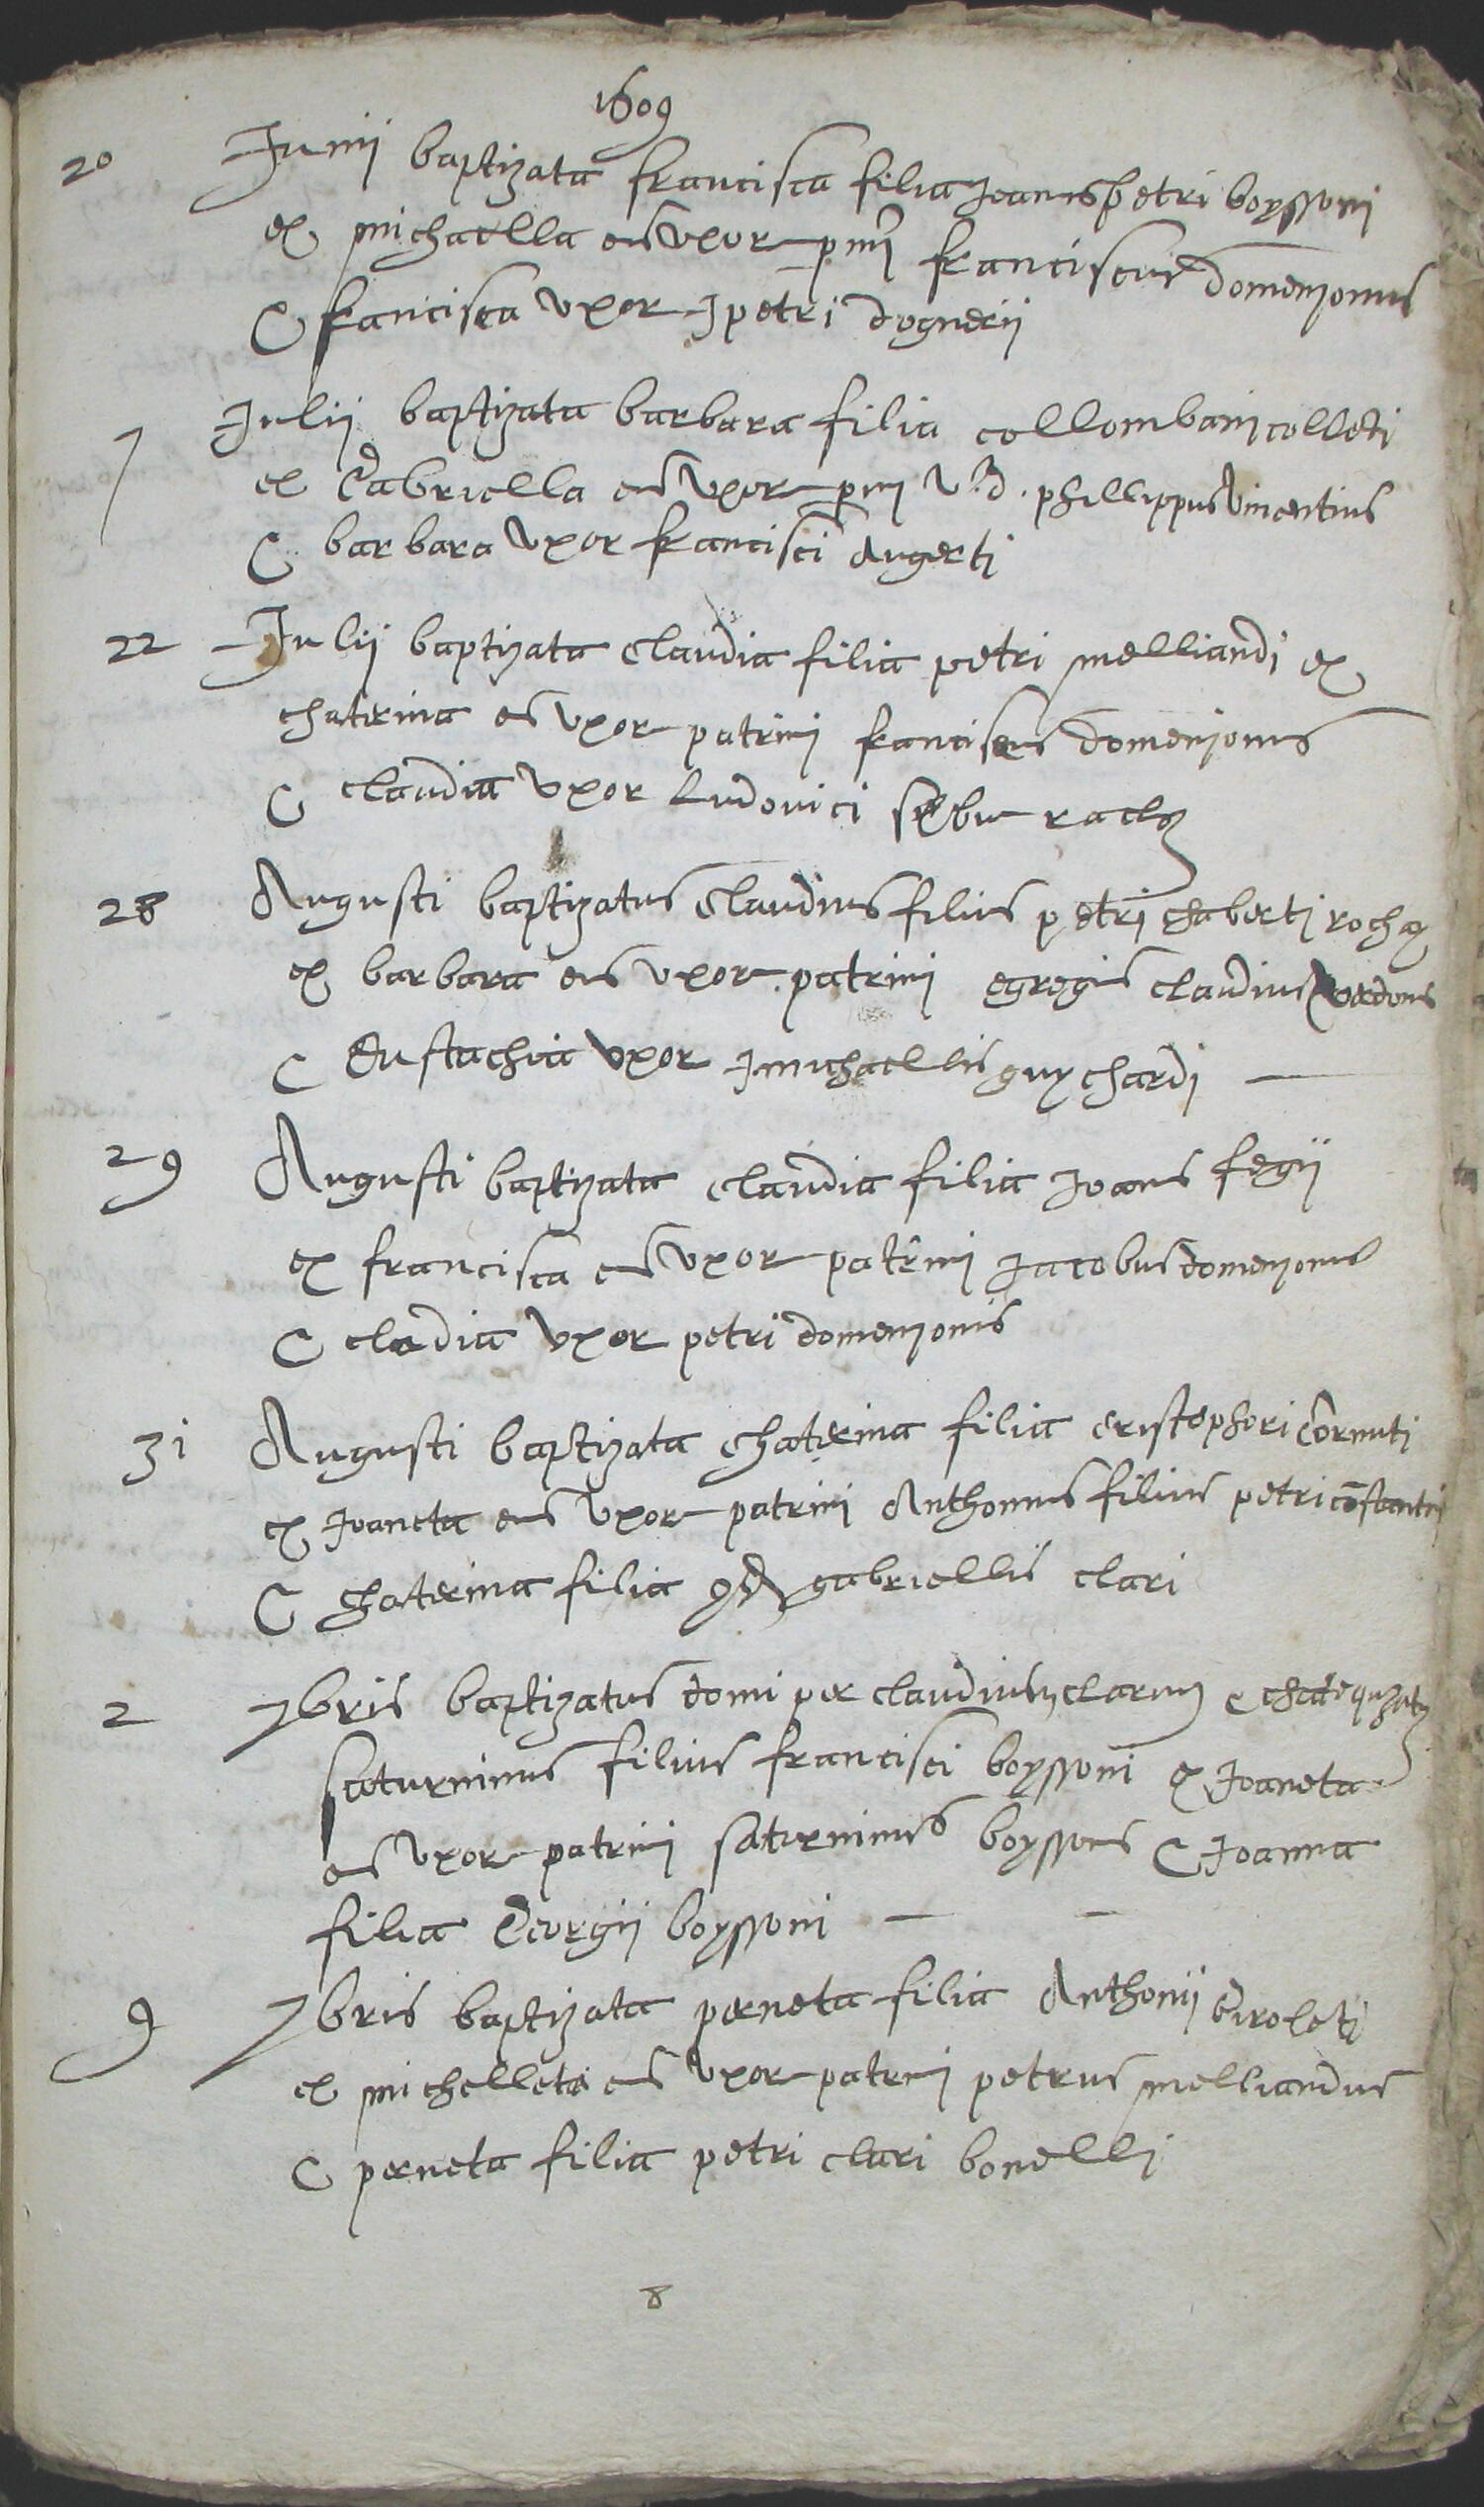 1609
20 Junii baptizata francisca filia Joanis petri boyssoni
ex michaella eius uxor pmi franciscus domenjonus
& francisca uxor J petri dognerii
7 Julii baptizata barbara filia collombani colleti
ex Gabriella eius uxor pmi v. d. phillippus vincentius
& barbara uxor francisci Augerti
22 Julii baptizata Claudia filia petri melliandi ex
chaterina eius uxor patrini franciscus domenjonus
& claudia uxor Ludovici
28 Augusti baptizatus Claudius filius petri chaberti
ex barbara eius uxor patrini egregius claudius
& Eustachia uxor J michaellis guychardi
29 Augusti baptizata claudia filia Joanis fegii
ex francisca eius uxor patrini Jacobus domenjonus
& cladia uxor petri domenjonis
31 Augusti baptizata Chaterina filia cristophori Cornuti
ex Joaneta eius uxor patrini Anthonius filius petri costantii
& Chaterina filia qd gabriellis clari
2 7bris baptizatus domi per claudium clarum & chatequzatus
Saturninus filius francisci boyssoni ex Joaneta
eius uxor patrini saturninus boyssons & Joanna
filia Georgii boyssoni
9 7bris baptizata perneta filia Anthonii biroleti
ex michelleta eius uxor patrini petrus melliandus
& perneta filia petri clari bonelli
8